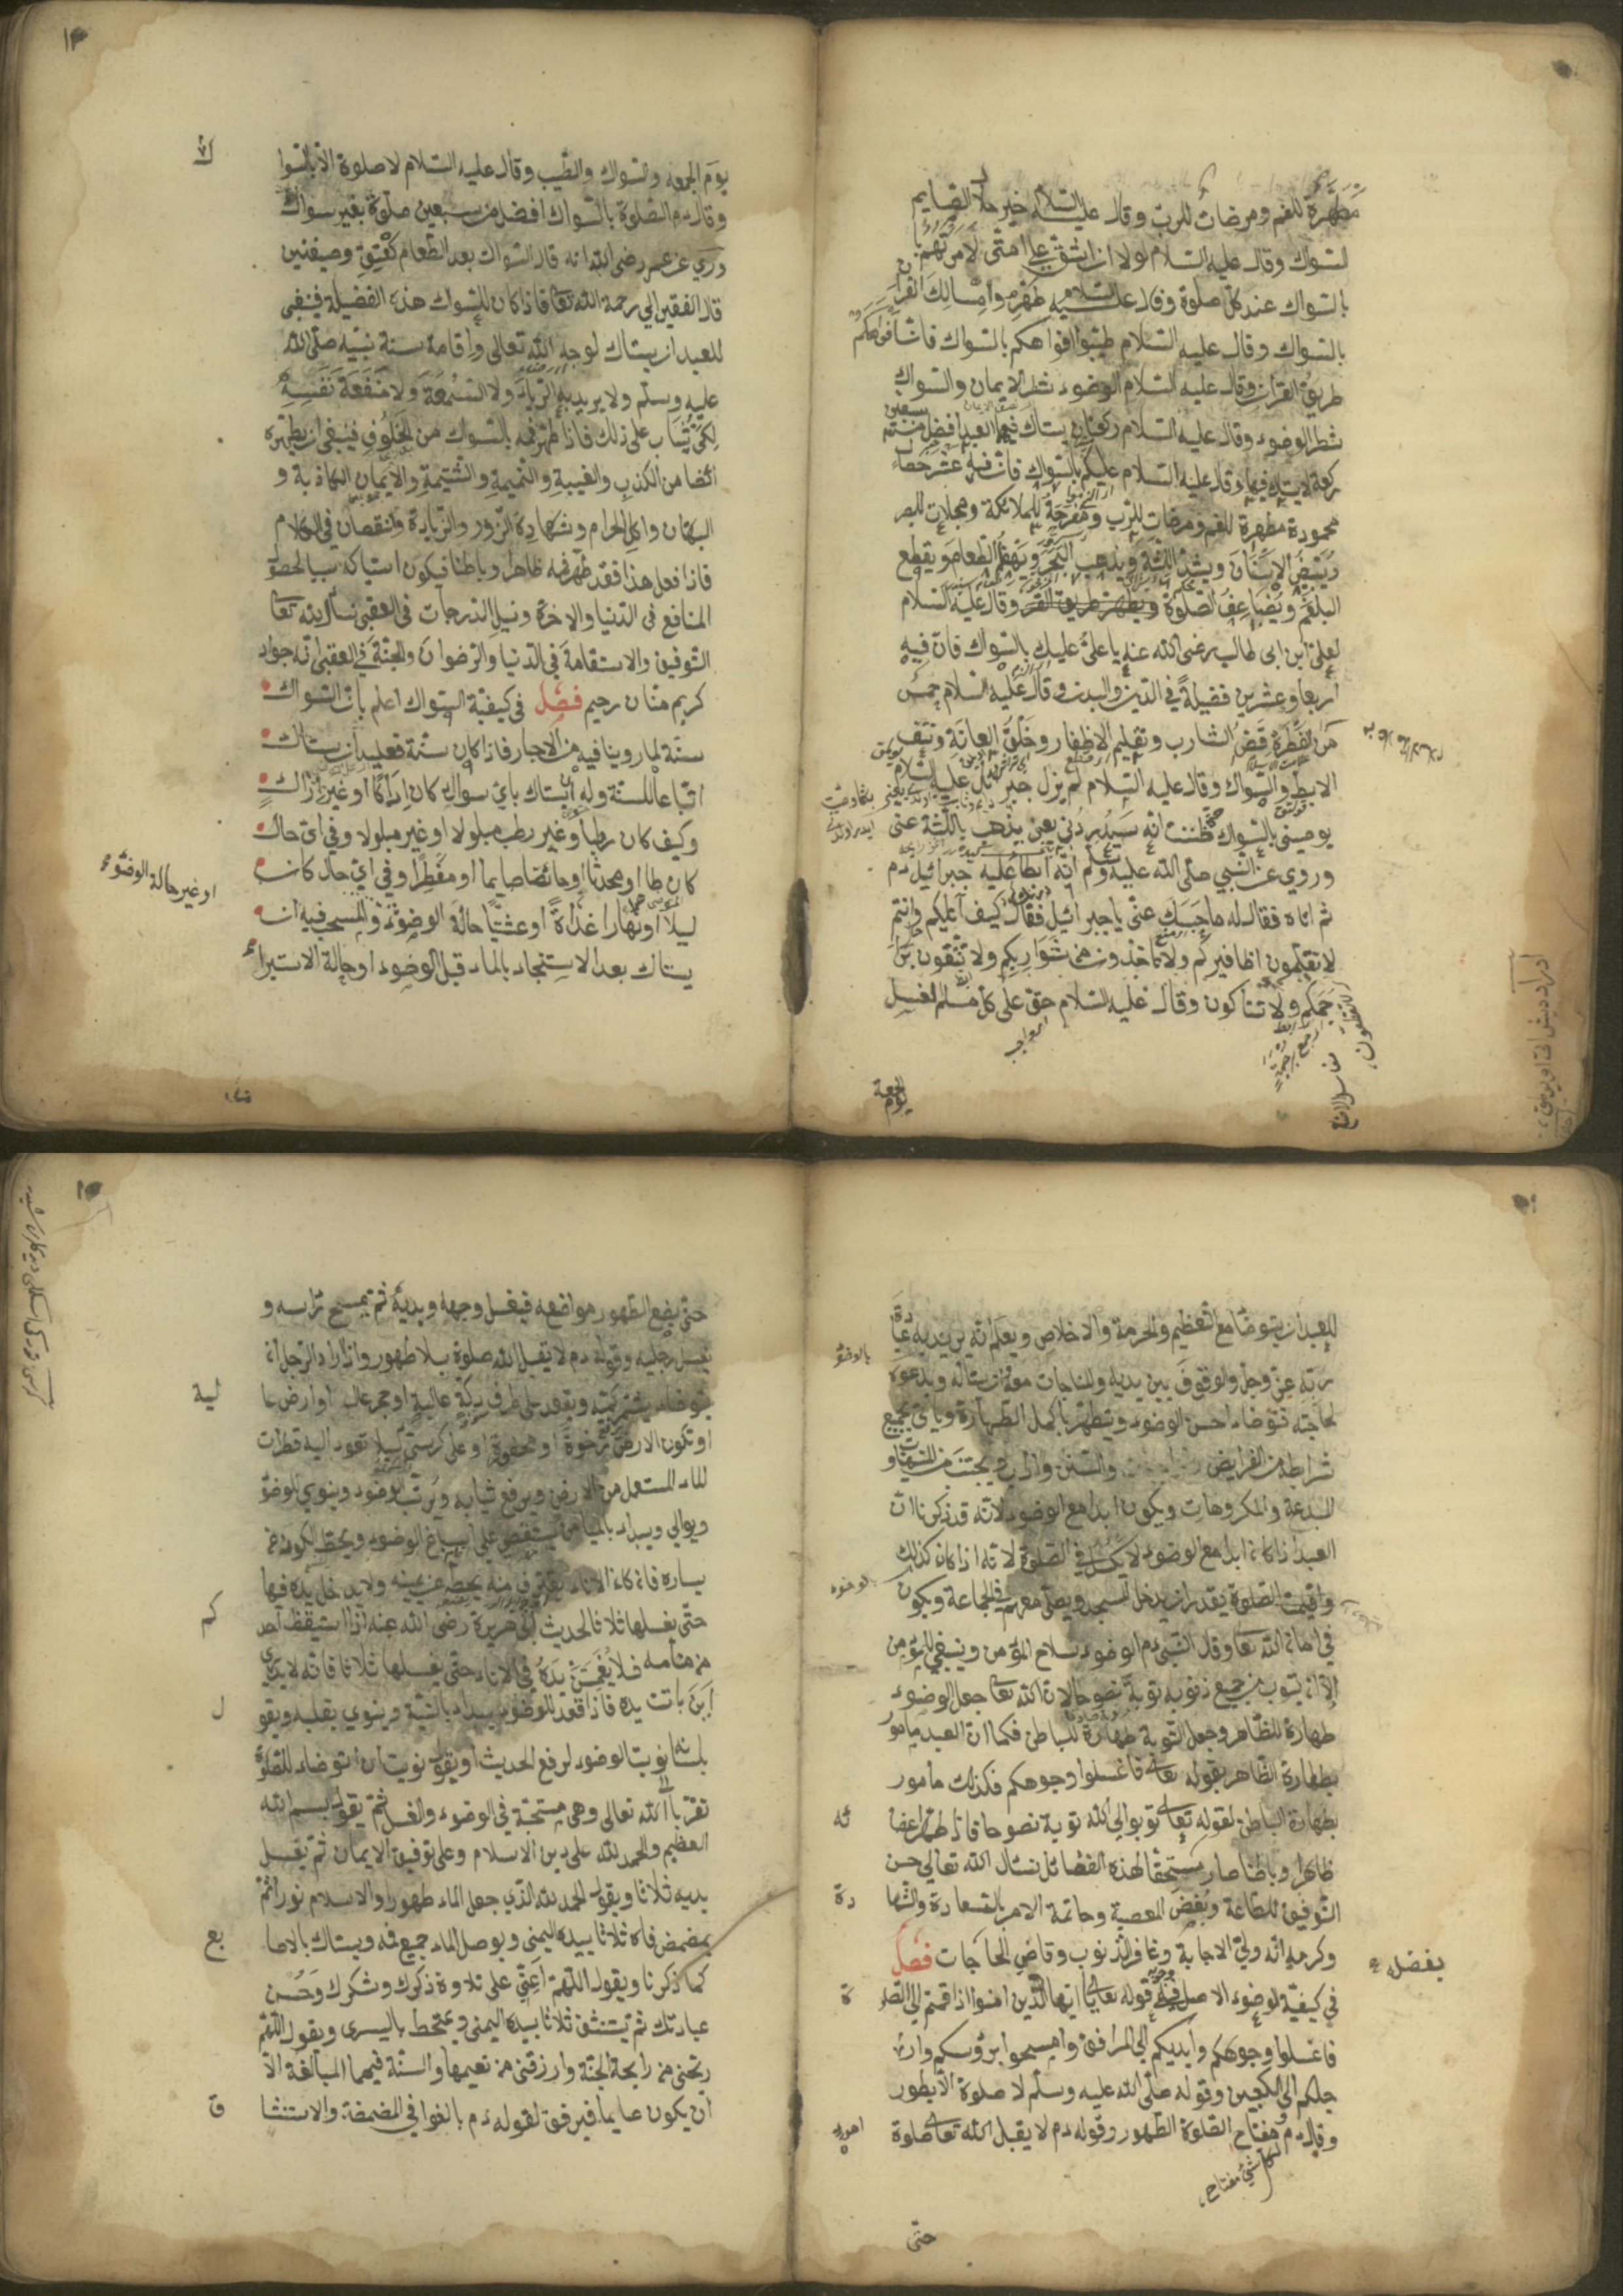 مَطْهَرَة للفم ومرضات للرب وقال عليه السلام خير خلال الصايم
لسواك وقال عليه السلام لولا ان اشق على امتى لامرتهم
بالسواك عند كل صلوة وقال عليه السلام طهروا مسالك القرآن
بالسواك وقال عليه السلام طيبوا افواهكم بالسواك فان افواهكم
طريق القرآن وقال عليه السلام الوضوء شطر الايمان والسواك
شطر الوضوء وقال عليه السلام ركعتان يستاك فيهما العبد افضل من سبعين
ركعة لا يستاك فيها وقال عليه السلام عليكم بالسواك فان فيه عشر خصال
محمودة مطهرة للفم ومرضات للرب ومفرحة للملائكة ومجلات للبصر
ويبيض الاسنان ويشد اللثة ويذهب البخر ويهضم الطعام ويقطع
البلغم ويضاعف الصلوة ويطهر طريق القرآن وقال عليه السلام
لعلى ابن ابى طالب رضى الله عنه يا على عليك بالسواك فان فيه
اربعا وعشرين فضيلة في الدين والبدن وقال عليه السلام خمس
من الفطرة قص الشارب وتقليم الاظفار وحلق العانة ونتف
الابط والسواك وقال عليه السلام لم يزل جبرائل عليه السلام
يوصيني بالسواك حتى ظننت انه سيدردني يعني يذهب باللثة عنى
وروي عن النبي صلى الله عليه وسلم انه ابطأ عليه جبرائيل دم
ثم اتاه فقال له ما حبسك عنى يا جبرائيل فقال كيف آتيكم وانتم
لا تقلمون اظافيركم ولا تأخذون من شواربكم ولا تنقون براجمكم
ولا تستاكون وقال عليه السلام حق على كل مسلم الغسل
يوم الجمعة
يوم الجمعة والسواك والطيب وقال عليه السلام لا صلوة الا بالسوا
ك
وقال دم الصلوة بالسواك افضل من سبعين صلوة بغير سواك
وروي عن عمر رضى الله انه قال السواك بعد الطعام كعتق وصيفتين
قال الفقير الى رحمة الله تعا فاذا كان للسواك هذه الفضيلة فينبغى
للعبد ان يستاك لوجه الله تعالى واقامة سنة نبيه صلى الله
عليه وسلم ولا يريد به الرياء ولا السمعة ولا منفعة نفسه
لكى يثاب على ذلك فاذا طهر فمه بالسواك من الخلوف فينبغى ان يطهره
ايضا من الكذب والغيبة والنميمة والشتيمة والايمان الكاذبة و
البهتان واكل الحرام وشهادة الزور والزيادة والنقصان في الكلام
فاذا فعل هذا فقد طهر فمه ظاهرا وباطنا فيكون استياكه سببا لحصو
المنافع في الدنيا والاخرة ونيل الدرجات في العقبى نسأل الله تعا
التوفيق والاستقامة في الدنيا والرضوان والجنة في العقبى انه جواد
كريم منان رحيم فصل في كيفية السواك اعلم بان السواك
سنة لما روينا فيه من الاخبار فاذا كان سنة فعليه ان يستاك
اتباعا للسنة وله ان يستاك باي سواك كان اراكا او غير اراك
وكيف كان رطبا وغير رطب مبلولا او غير مبلولا وفي اى حال
كان طاهرا ومحدثا او حائضا صايما او مفطرا وفي اى حال كان
ليلا او نهارا غداة او عشيا حالة الوضوء والمستحب فيه ان
او غير حالة الوضوء
يستاك بعد الاستنجاء بالماء قبل الوضوء او حالة الاستبراء
للعبد ان يتوضأ مع التعظيم والحرمة والاخلاص ويعلم انه يريد به عبادة
ربه عز وجل والوقوف بين يديه والمناجات معه ان يسأله ويدعوه
لحاجته فتوضاء احسن الوضوء ويتطهر باكمل الطهارة ويأتى بجميع
شرايطه من الفرايض والسنن والاداب ويجتنب من المنهيات و
البدعة والمكروهات ويكون ابدا مع الوضوء لانه قد ذكرنا ان
العبد اذا كان ابدا مع الوضوء لا يكسل في الصلوة لانه اذا كان كذلك
واقيمت الصلوة يقدر ان يدخل المسجد ويصلى معهم في الجماعة ويكون
في امان الله تعا وقال النبي دم الوضوء سلاح المؤمن وينبغي للمؤمن
الا ان يتوب من جميع ذنوبه توبة نصوحا لان الله تعا جعل الوضوء
طهارة للظاهر وجعل التوبة طهارة للباطن فكما ان العبد مأمور
بطهارة الظاهر بقوله تعالى فاغسلوا وجوهكم فكذلك مأمور
بطهارة الباطن لقوله تعالى توبوا الى الله توبة نصوحا فاذا طهر اعضا
ئه
ظاهرا وباطنا صار مستحقا لهذه الفضائل نسئال الله تعالى حسن
التوفيق للطاعة وبغض المعصية وخاتمة الامر بالسعادة والشها
دة
بفضله
وكرمه انه ولى الاجابة وغافر الذنوب وقاضى الحاجات فصل
في كيفية الوضوء الاصل فيه قوله تعالى يا ايها الذين امنوا اذا قمتم الى الصلو
ة
فاغسلوا وجوهكم وايديكم الى المرافق وامسحوا برؤسكم وار
جلكم الى الكعبين وقوله صلى الله عليه وسلم لا صلوة الا بطهور
وقال دم مفتاح الصلوة الطهور وقوله دم لا يقبل الله تعالى صلوة
لكل شئ مفتاح
حتى
حتى يضع الطهور مواضعه فيغسل وجهه ويديه ثم يمسح رأسه و
يغسل رجليه وقوله دم لا يقبل الله صلوة بلا طهور واذا اراد الرجل ان
يتوضاء يشمر كميه ويقعد على طرف دكة عالية او حجر عال او ارض عا
لية
او تكون الارض رخوة او محفورة او على كرسي كيلا تعود اليه قطرات
الماء المستعمل من الارض ويرفع ثيابه ويرتب الوضوء وينوي الوضوء
ويوالي ويبداء بالميامن يستقصى على اسباغ الوضوء ويحط الكوز عن
يساره فان كان الاناء يغترف منه يحطه عن يمينه ولا يدخل يده فيها
حتى يغسلها ثلاثا لحديث ابى هريرة رضى الله عنه اذا استيقظ احد
كم
من منامه فلا يغمسن يده في الاناء حتى يغسلها ثلاثا فانه لا يدرى
اين باتت يده فاذا قعد للوضوء يبداء بالنية وينوي بقلبه ويقو
ل
بلسانه نويت الوضوء لرفع الحدث او يقول نويت ان اتوضاء للصلوة
تقربا الى الله تعالى وهى مستحبة في الوضوء والغسل ثم يقول بسم الله
العظيم والحمد لله على دين الاسلام وعلى توفيق الايمان ثم يغسل
يديه ثلاثا ويقول الحمد لله الذي جعل الماء طهورا والاسلام نورا ثم
يمضمض فاه ثلاثا بيده اليمنى ويوصل الماء جميع فمه ويستاك بالاصا
بع
كما ذكرنا ويقول اللهم اعنى على تلاوة ذكرك وشكرك وحسن
عبادتك ثم يستنشق ثلاثا بيده اليمنى ويمتخط باليسرى ويقول اللهم
ريحنى من رايحة الجنة وارزقنى من نعيمها والسنة فيهما المبالغة الا
ان يكون صايما فيرفق لقوله دم بالغوا في المضمضة والاستنشا
ق